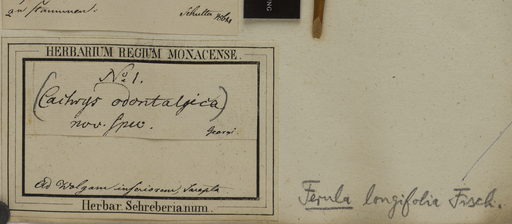 HERBARIUM REGIUM MONACENSE.
No 1.
(Cachrys odontalgica)
nov. spec.
Georgi.
Ad Wolgam inferiorem, Sarepta
Herbar. Schreberianum.
Ferula longifolia Fisch.